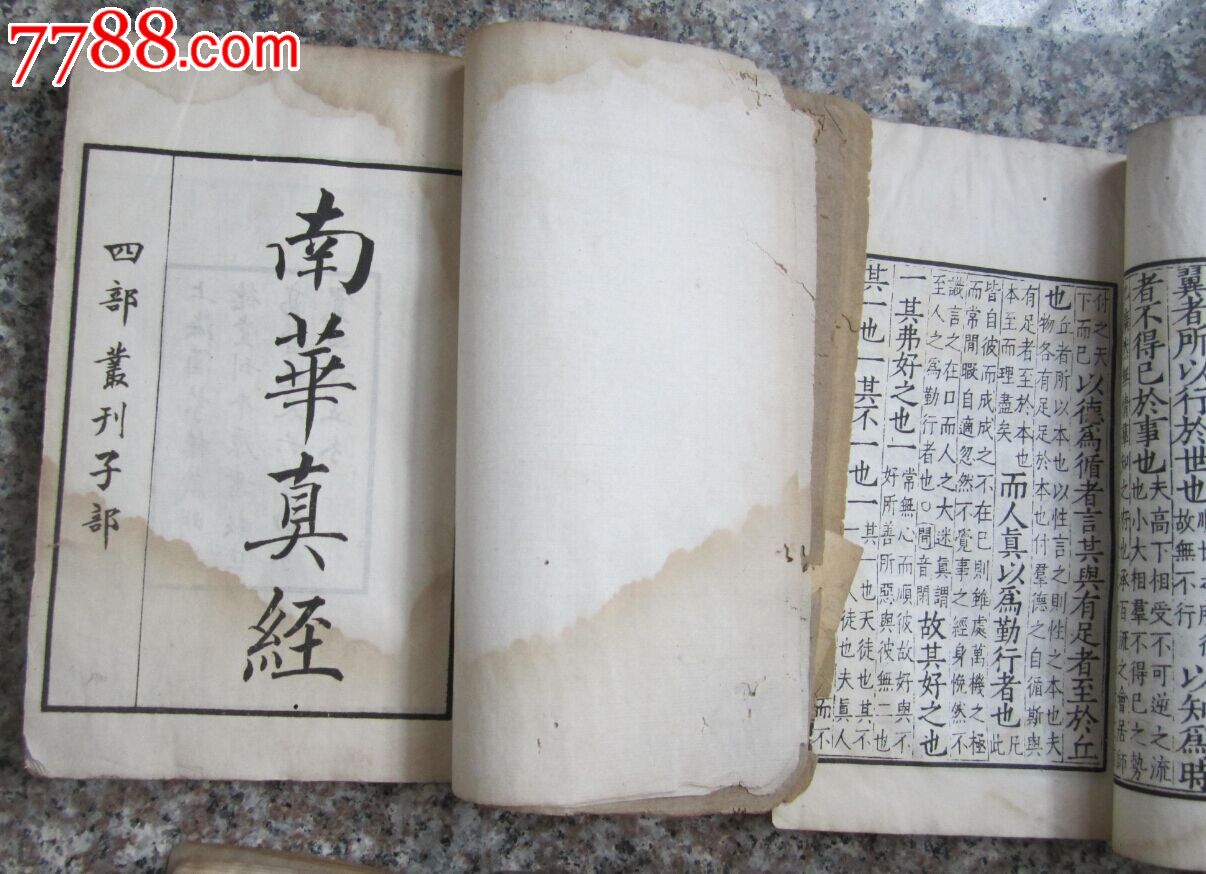 7788.com
南華真經
四部叢刊子部
翼者所以行於世也
故無不行
以知為時
者不得已於事也
天高下相受不可逆之流
也小大相羣不得已之勢
知之府也承百流之會居師
什之天
下而已
以德為循者言其與有足者至於丘
也
丘者所以本也以性言之則性之本也夫
物各有足足於本也付羣德之自循斯與
有足者至於本也
本至而理盡矣
而人真以為勤行者也
凡此
皆自彼而成成之不在已則雖處萬機之極
而常閒暇自適忽然不覺事之經身悗然不
識言之在口而人之大迷真謂
至人之為勤行者也○閒音閑
故其好之也
一其弗好之也一
常無心而順彼故好與不
好所善所惡與彼無二也
其一也一其不一也一
其一也天徒也其不
一人徒也夫真人
而不